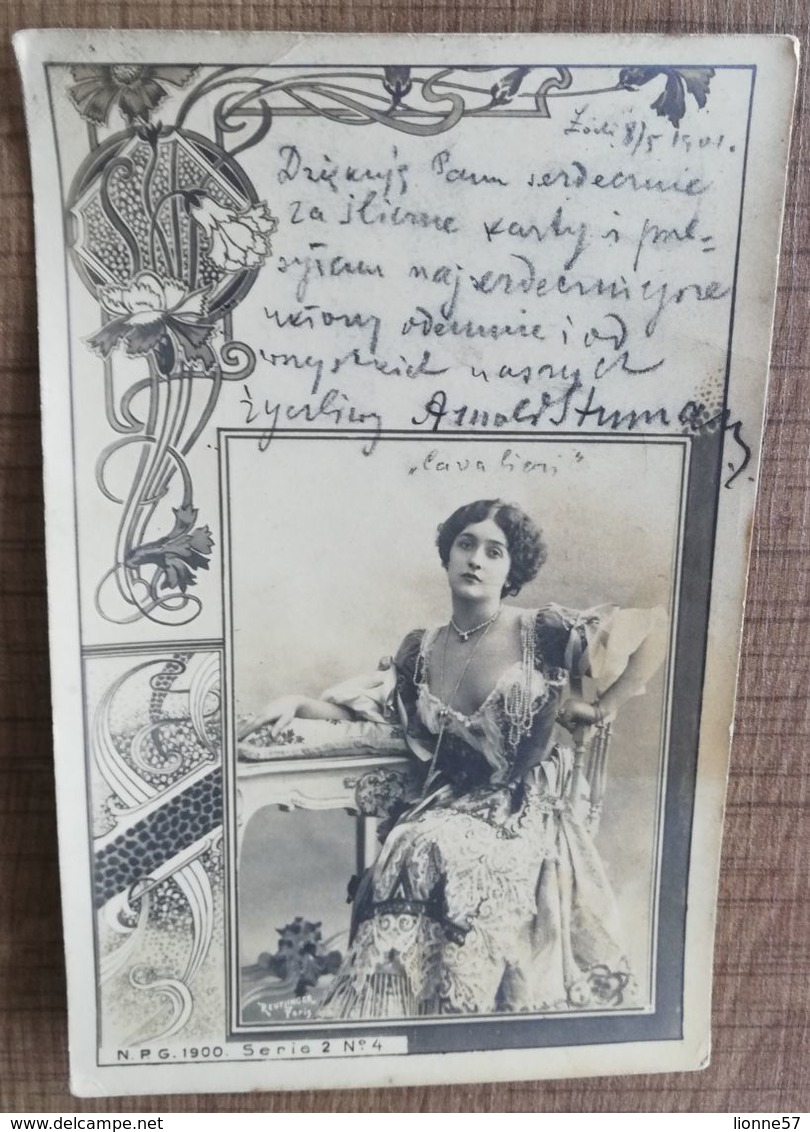 Łódź 8/5 1901.
Dziękuję Panu serdecznie
za śliczne karty i prze=
syłam najserdeczniejsze
ukłony odemnie i od
wszystkich naszych
życzliwy Arnold
„Cavalieri"
REUTLINGER
Paris
N.P.G. 1900. Serie 2 Nº 4
lionne57